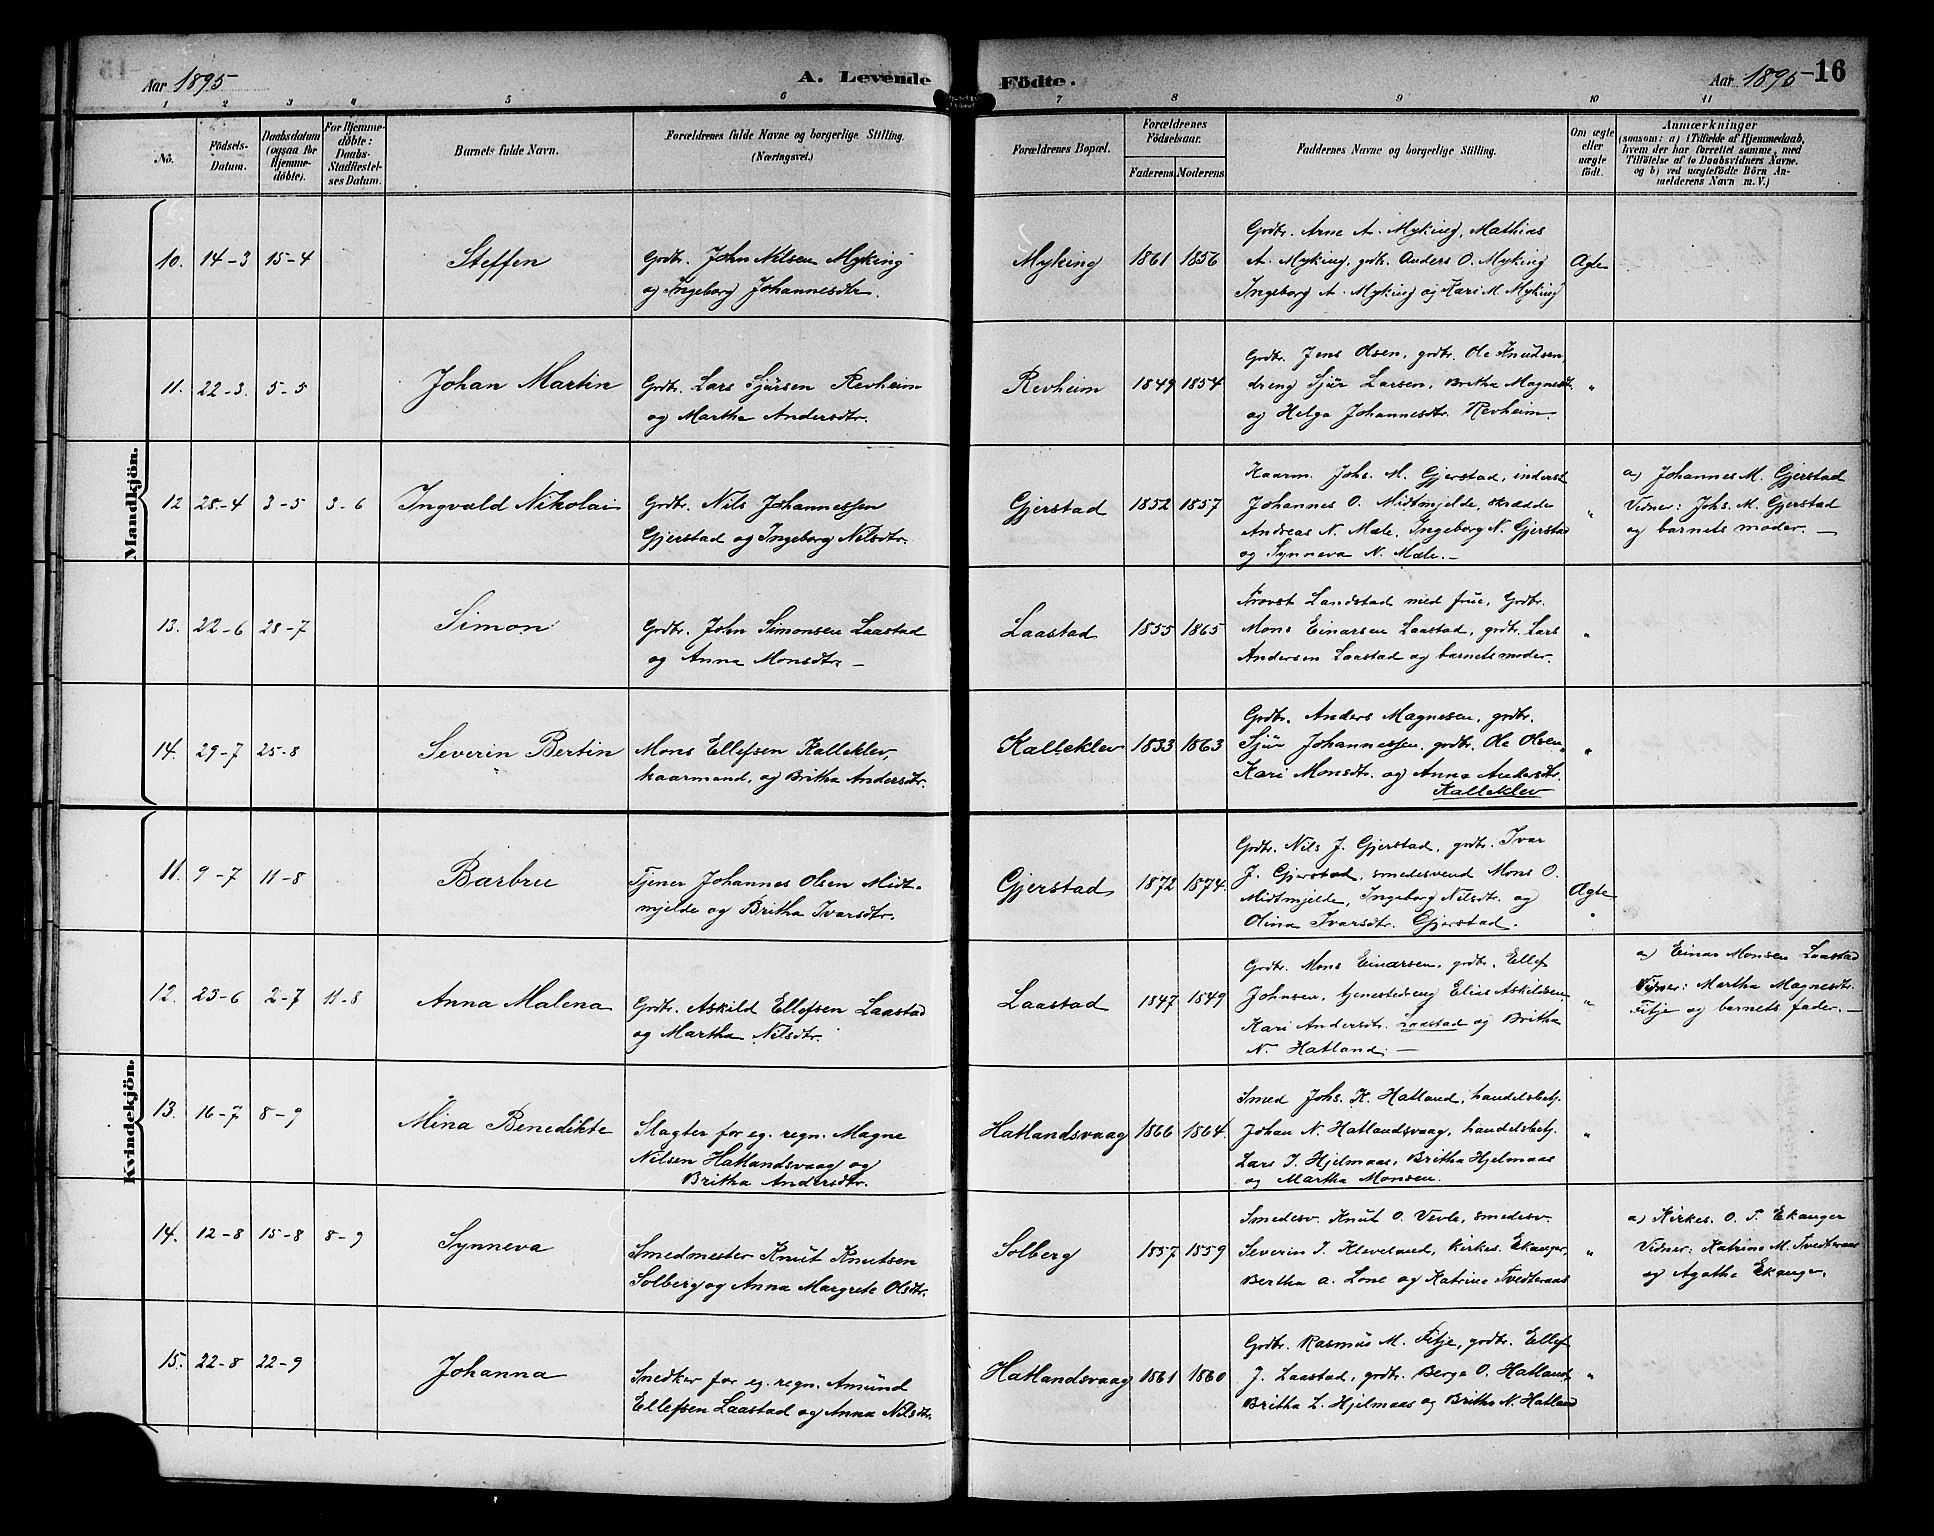 Aar 1895
A. Levende
Födte.
Aar 1895
16
1 2 3 4 5 6 7 8 9 10 11
No.
Födsels-Datum.
Daabsdatum (ogsaa for Hjemmedöbte).
For Hjemmedöbte: Daabs-Stadfæstelses Datum.
Barnets fulde Navn.
Forældrenes fulde Navne og borgerlige Stilling.
(Næringsvei.)
Forældrenes Bopæl.
Forældrenes Födselsaar.
Faderens.
Moderens.
Faddernes Navne og borgerlige Stilling.
Om ægte eller uægte födt.
Anmærkninger
(saasom: a) i Tilfælde af Hjemmedaab, hvem der har forrettet samme, med Tilföielse af to Daabsvidners Navne, og b) ved uægtefödte Börn Anmelderens Navn m. V.)
Mandkjön.
10. 14-3 15-4
Steffen
Grdbr. John Nilsen Myking
og Ingeborg Johannesdtr.
Myking
1861 1856
Grdbr. Arne A. Myking, Mathias
A. Myking, grdb. Anders O. Myking
Ingeborg A. Myking og Kari M. Myking
Ægte
11. 22-3. 5-5
Johan Martin
Grdbr. Lars Sjursen Revheim
og Martha Andersdtr.
Revheim
1849 1854
Grdbr. Jens Olsen, grdbr. Ole Knudsen
dreng Sjur Larsen, Britha Magnesdt.
og Helga Johannesdtr. Revheim.
"
12 28-4 3-5 3-6
Ingvald Nikolai
Grdbr. Nils Johannessen
Gjerstad og Ingeborg Nilsdtr.
Gjerstad
1852 1857
Kaarm. Johs. M. Gjerstad, inderst
Johannes O. Midtmjelde, skrædder
Andreas N. Mæle, Ingeborg N. Gjerstad
og Synneva N. Mæle.-
"
a) Johannes M. Gjerstad
Vidner: Johs. M. Gjerstad
og barnets moder. -
13. 22-6 28-7
Simon
Grdbr. John Simonsen Laastad
og Anna Monsdtr. -
Laastad
1855 1865
Provst Landstad med frue, Grdbr.
Mons Einarsen Laastad, grdbr. Lars
Andersen Laastad og barnets moder.
"
14. 29-7 25-8
Severin Bertin
Mons Ellefsen Kalleklev,
kaarmand, og Britha Andersdtr.
Kalleklev
1833 1863
Grdbr. Anders Magnesen, grdbr.
Sjur Johannessen, grdbr. Ole Olsen,
Kari Monsdtr. og Anna Andersdtr.
Kalleklev
"
Kvindekjön.
11. 9-7 11-8
Barbru
Tjener Johannes Olsen Midt-
mjelde og Britha Ivarsdtr.
Gjerstad
1872 1874
Grdbr. Nils J. Gjerstad, grdbr. Ivar
J. Gjerstad, smedesvend Mons O.
Midtmjelde, Ingeborg Nilsdtr. og
Olina Ivarsdtr. Gjerstad.
Ægte
12. 23-6 2-7 11-8
Anna Malena
Grdbr. Askild Ellefsen Laastad
og Martha Nilsdtr.
Laastad
1847 1849
Grdbr. Mons Einarsen, grdbr. Ellef
Johnsen, tjenestedreng Elias Askildsen
Kari Andersdtr. Laastad og Britha
N. Hatland. -
"
a) Einar Monsen Laastad
Vidner: Martha Magnesdtr.
Fitje og barnets fader. -
13. 16-7 8-9
Mina Benedikte
Slagter for eg. regn. Magne
Nilsen Hatlandsvaag og
Britha Andersdtr.
Hatlandsvaag
1866 1864
Smed Johs. K. Hatland, handelsbetj.
Johan N. Hatlandsvaag, handelsbetj.
Lars J. Hjelmaas, Britha Hjelmaas
og Martha Monsen.
"
14. 12-8 15-8 8-9
Synneva
Smedmester Knut Knutsen
Solberg og Anna Margrete Olsdtr.
Solberg
1857 1859
Smedesv. Knut O. Vevle, smedesv.
Severin J. Kleveland, kirkes. Ekanger,
Bertha A. Lone og Katrine Tvedteraas
"
a) Kirkes. O. T. Ekanger
Vidner: Katrine M. Tvedteraas
og Agatha Ekanger.
15. 22-8 22-9
Johanna
Snedker for eg. regn. Amund
Ellefsen Laastad og Anna Nilsdtr.
Hatlandsvaag
1861 1860
Grdbr. Rasmus M. Fitje, grdbr. Ellef
J. Laastad, grdbr. Berge O. Hatland,
Britha L. Hjelmaas og Britha N. Hatland
"